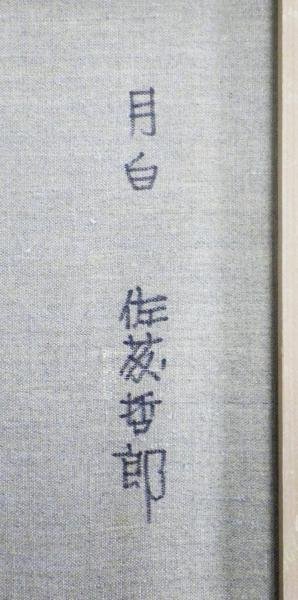 月白
佐藤哲郎